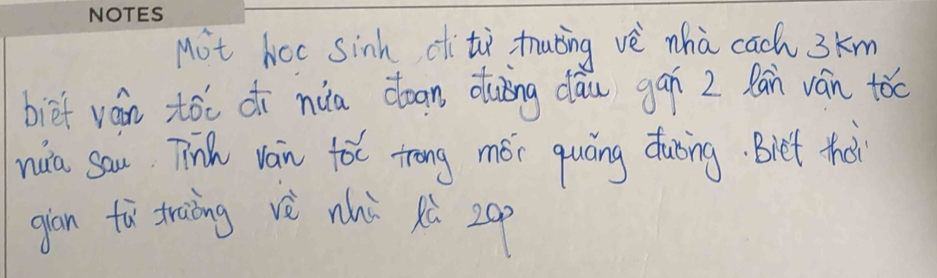 NOTES
Một học sinh đi từ trường về nhà cách 3km
biết vận tốc đi nửa đoạn đường đầu gấp 2 lần vận tốc
nửa sau. Tính vận tốc trong mỗi quãng đường. Biết thời
gian từ trường về nhà là 20p